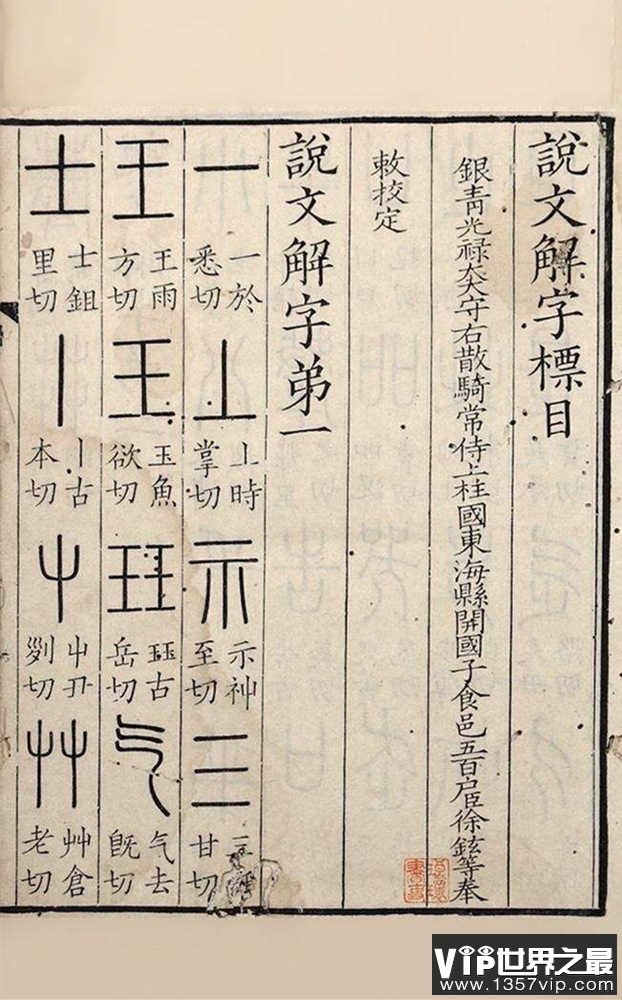 說文解字標目
銀青光祿大夫守右散騎常侍上柱國東海縣開國子食邑五百户臣徐鉉等奉
敕挍定
說文解字弟一
一 一於悉切 丄 丄時掌切 示 示神至切 三 甘切
王 王雨方切 玉 玉魚欲切 玨 玨古岳切 气 气去旣切
士 士鉏里切 丨 丨古本切 屮 屮丑列切 艸 艸倉老切
VIP世界之最
www.1357vip.com